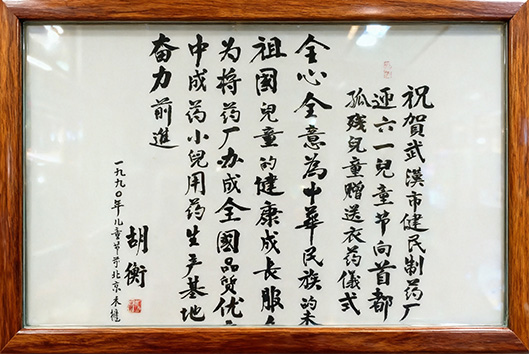 祝賀武漢市健民制药厂
迎六一兒童节向首都
孤残兒童赠送衣药儀式
全心全意為中華民族的未
祖國兒童的健康成長服
为将药厂办成全國品質优
中成药小兒用药生产基地
奋力前進
胡衡
一九九〇年儿童节于北京木樨